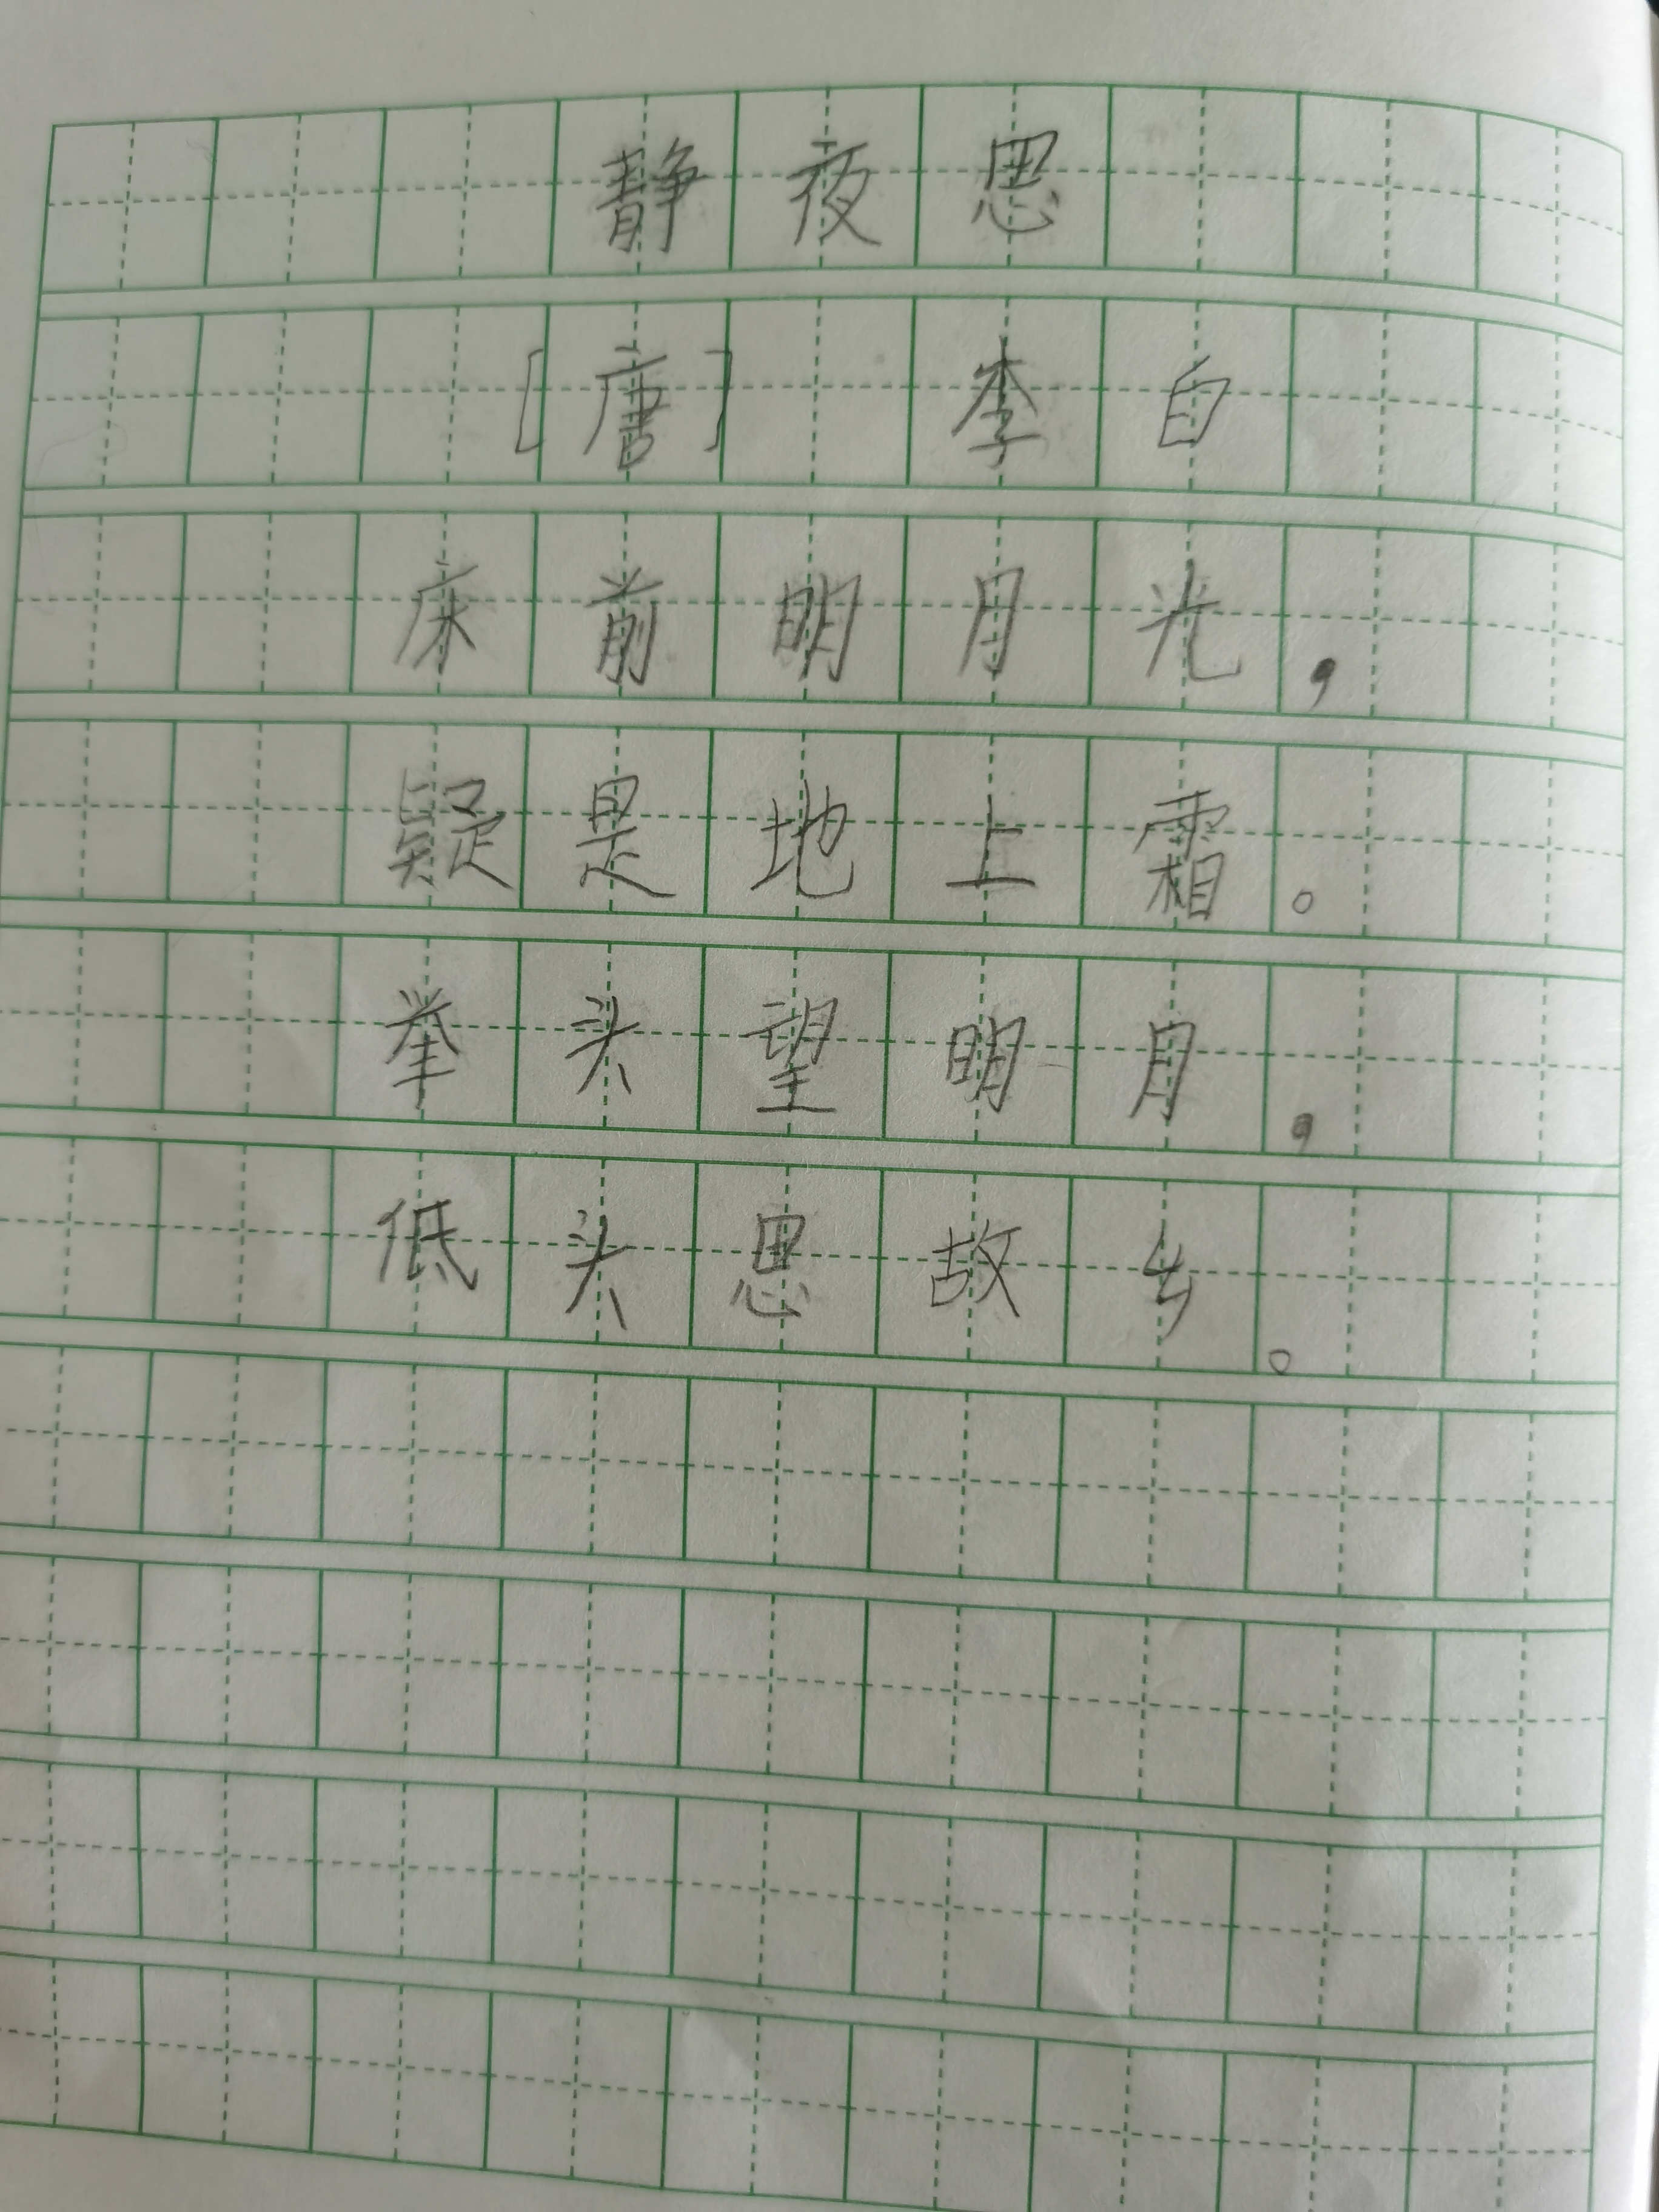 静夜思
[唐] 李白
床前明月光，
疑是地上霜。
举头望明月，
低头思故乡。